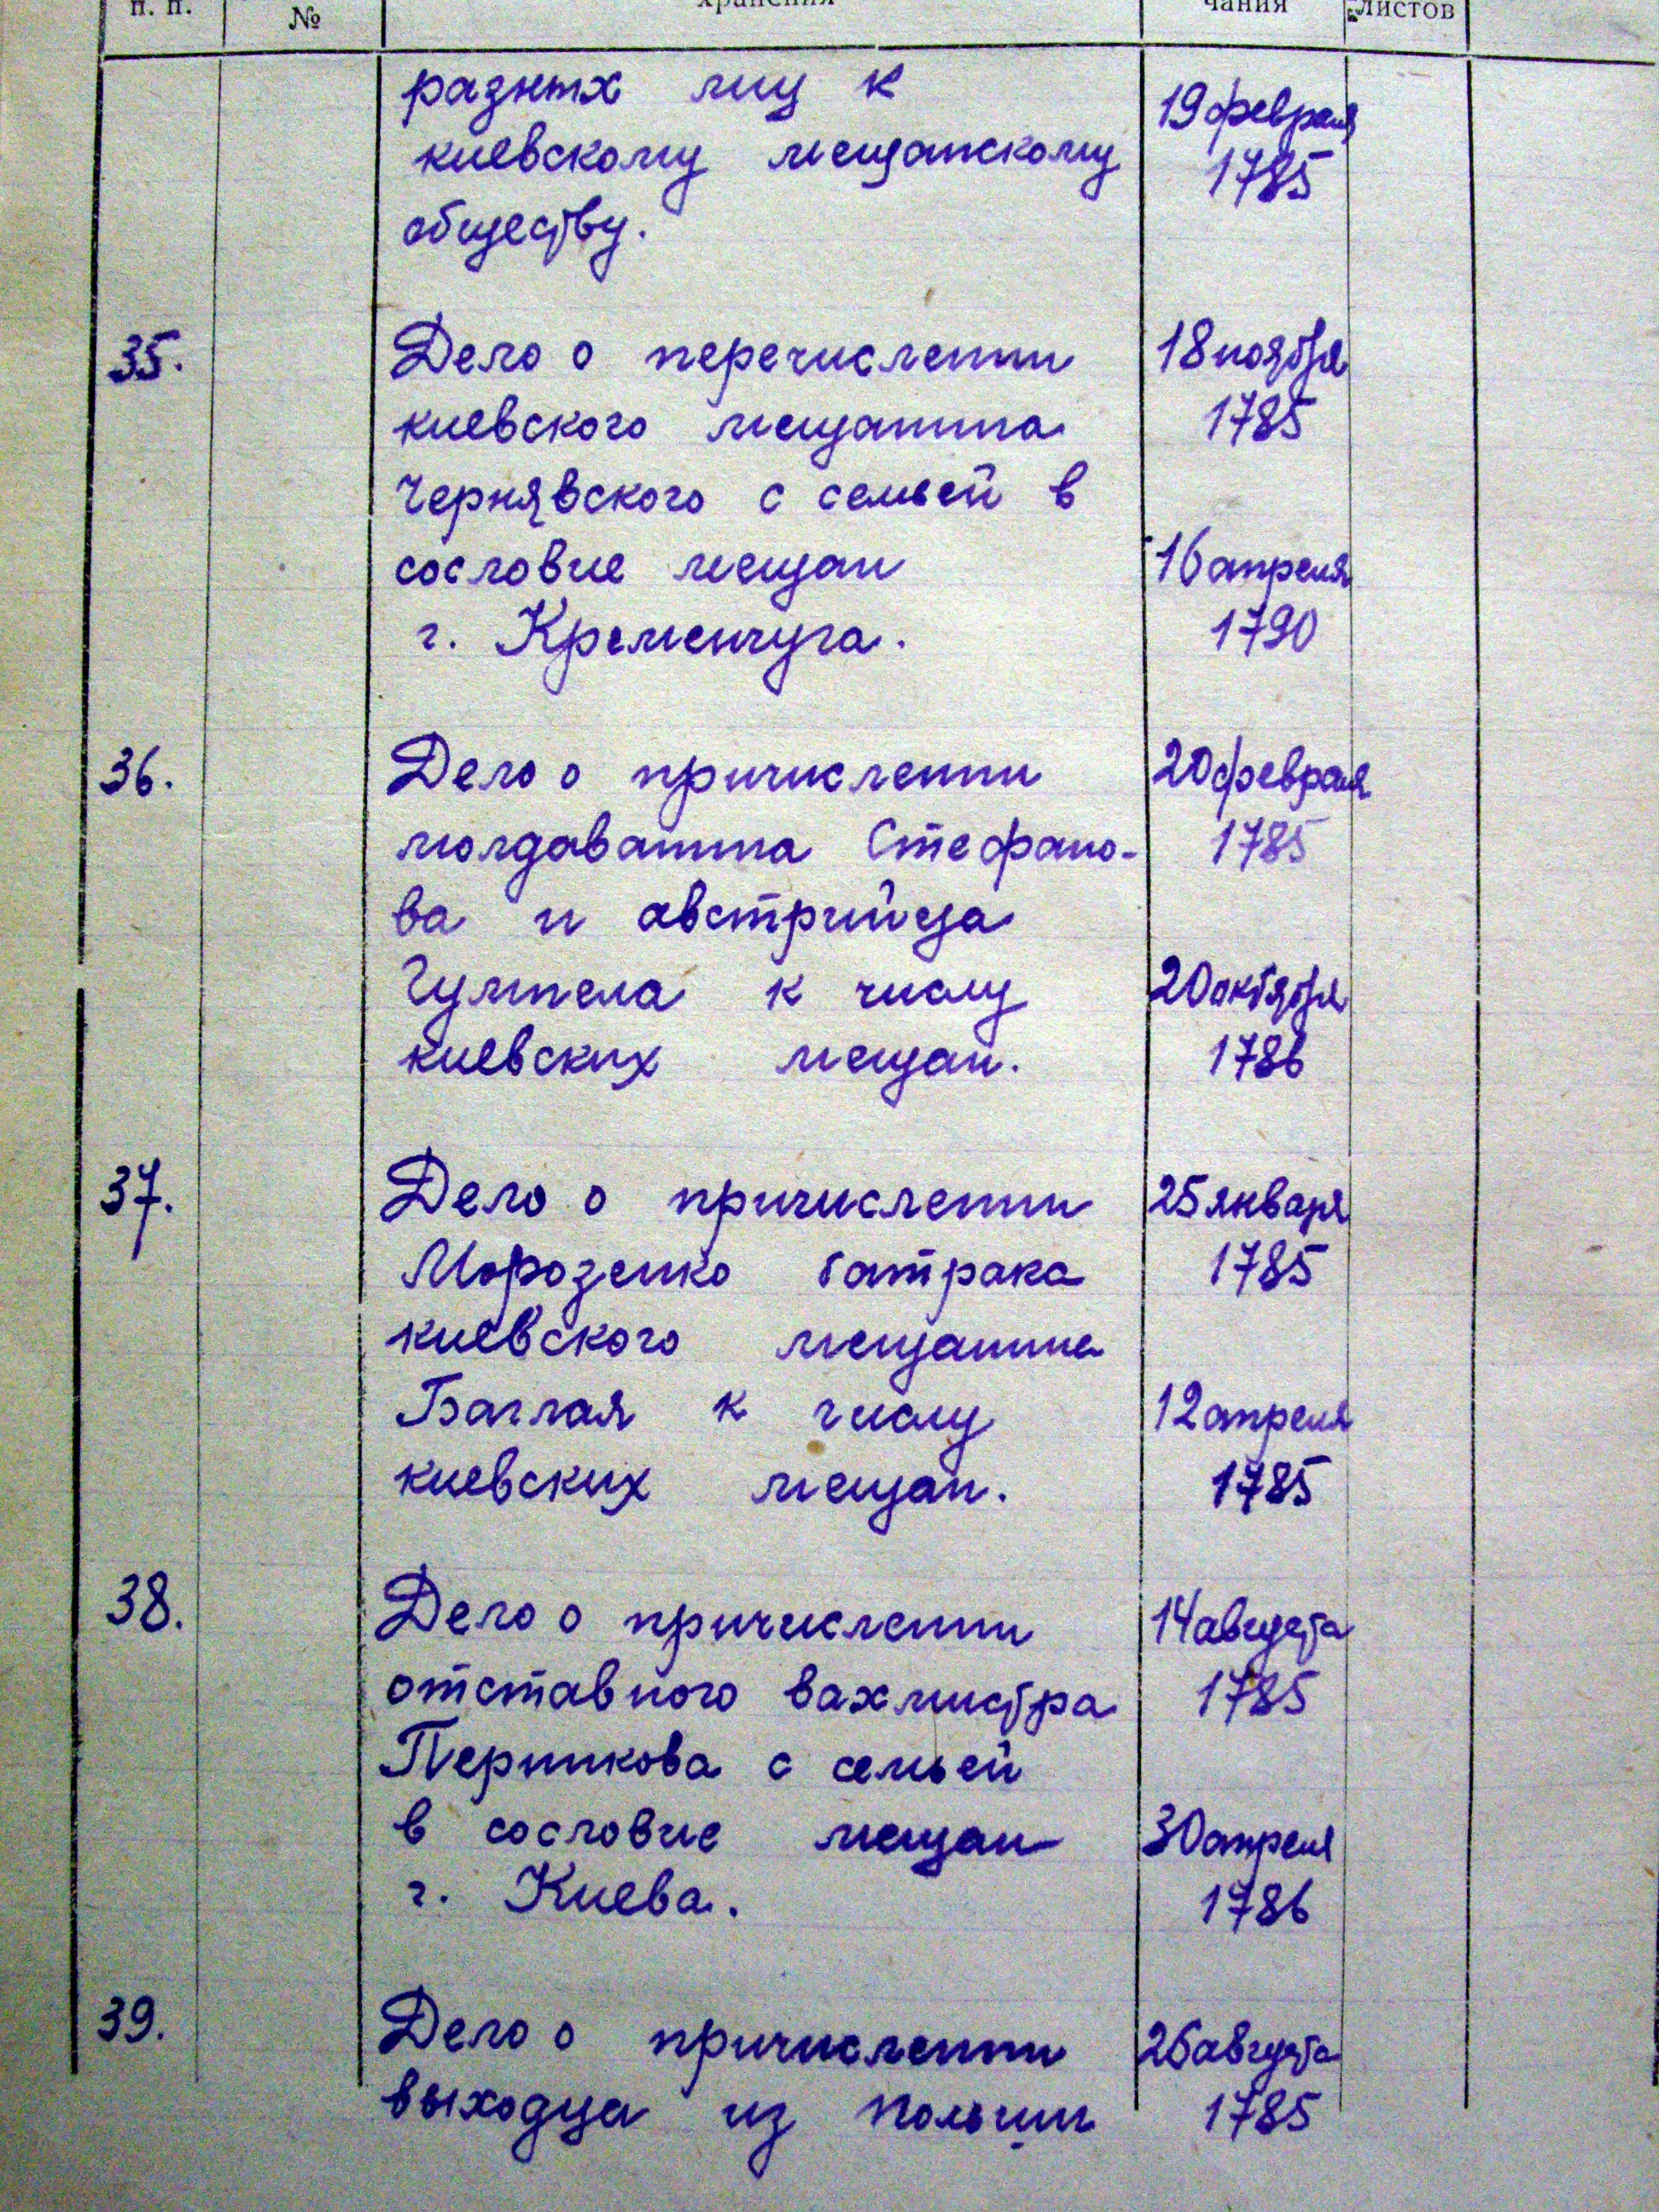 п. п. № хранения чания листов
разных лиц к 19 февраля
киевскому мещанскому 1785
обществу.
35. Дело о перечислении 18 ноября
киевского мещанина 1785
Чернявского с семьей в
сословие мещан 16 апреля
г. Кременчуга. 1790
36. Дело о причислении 20 февраля
молдаванина Стефано- 1785
ва и австрийца
к числу 20 октября
киевских мещан. 1786
37. Дело о причислении 25 января
Морозенко батрака 1785
киевского мещанина
Баглая к числу 12 апреля
киевских мещан. 1785
38. Дело о причислении 14 августа
отставного вахмистра 1785
с семьей
в сословие мещан 30 апреля
г. Киева. 1786
39. Дело о причислении 26 августа
выходца из Польши 1785